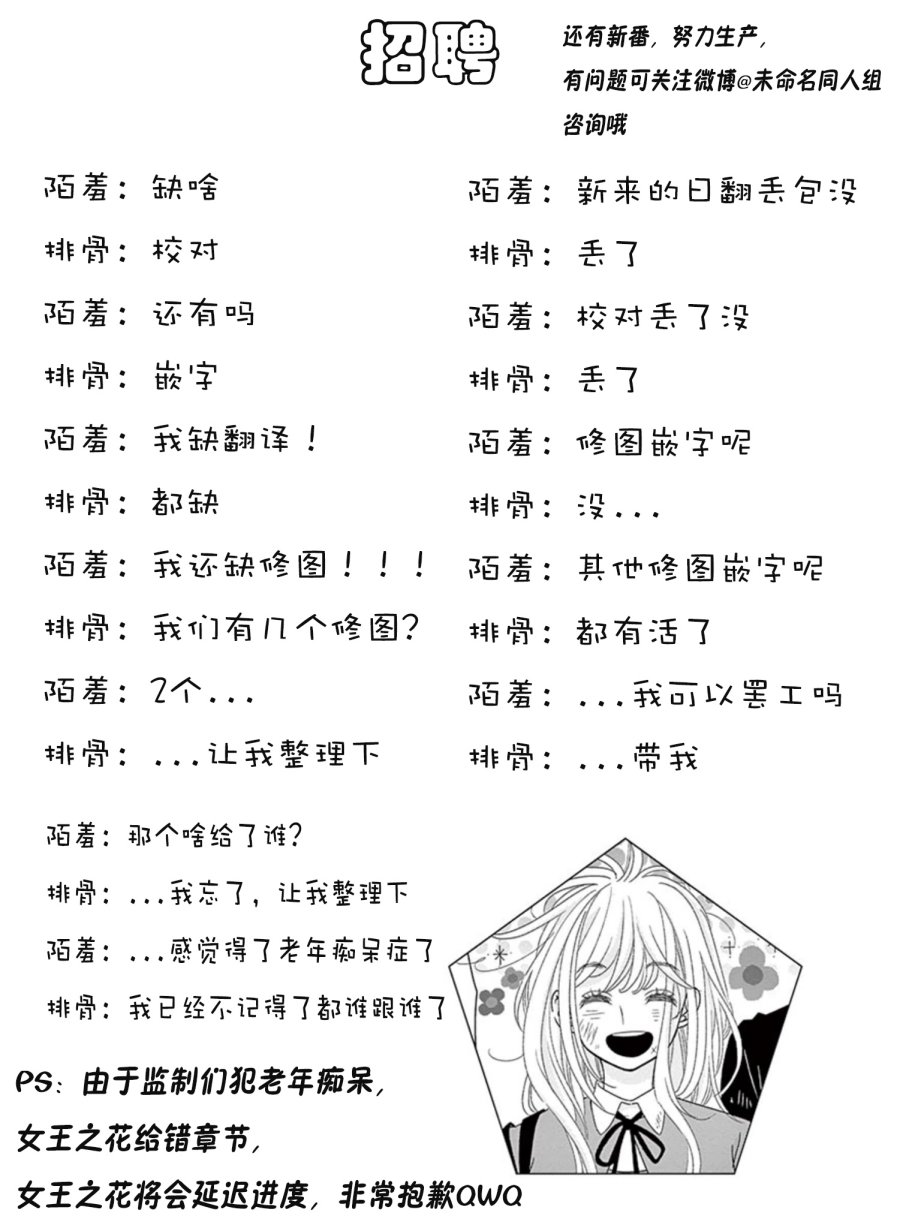 招聘
还有新番，努力生产，
有问题可关注微博@未命名同人组
咨询哦
陌羞：缺啥
排骨：校对
陌羞：还有吗
排骨：嵌字
陌羞：我缺翻译！
排骨：都缺
陌羞：我还缺修图！！！
排骨：我们有几个修图？
陌羞：2个...
排骨：...让我整理下
陌羞：新来的日翻丢包没
排骨：丢了
陌羞：校对丢了没
排骨：丢了
陌羞：修图嵌字呢
排骨：没...
陌羞：其他修图嵌字呢
排骨：都有活了
陌羞：...我可以罢工吗
排骨：...带我
陌羞：那个啥给了谁？
排骨：...我忘了，让我整理下
陌羞：...感觉得了老年痴呆症了
排骨：我已经不记得了都谁跟谁了
PS：由于监制们犯老年痴呆，
女王之花给错章节，
女王之花将会延迟进度，非常抱歉QWQ